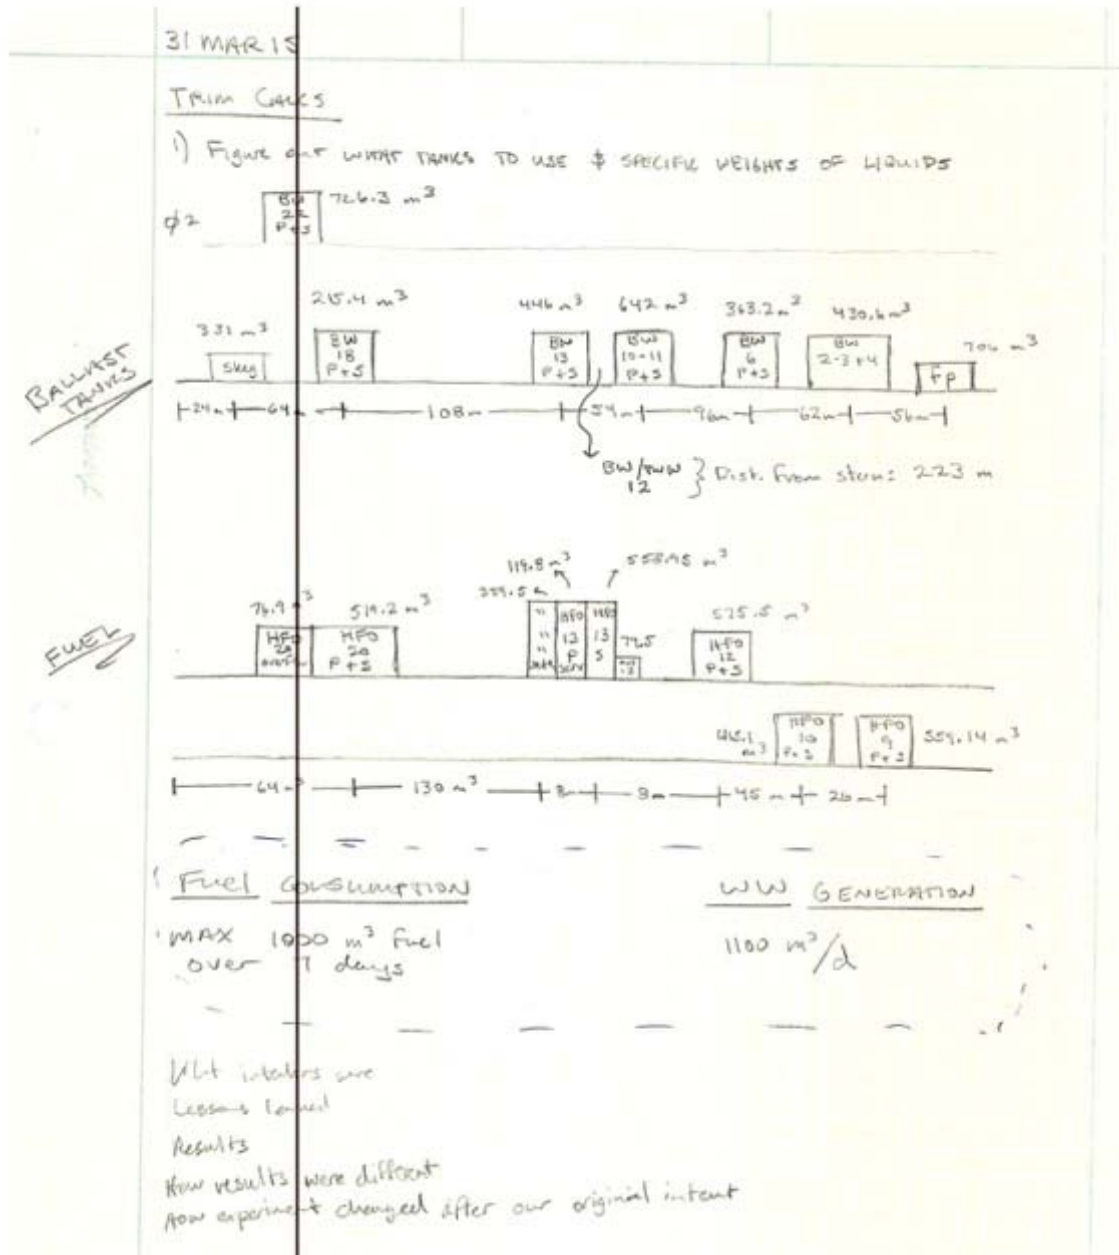 31 MAR 15
TRIM CALCS
1) Figure out WHAT TANKS TO USE & SPECIFIC WEIGHTS OF LIQUIDS
φ2
BW
22
P+S
726.3 m³
BALLAST
TANKS
331 m³
Skeg
215.4 m³
BW
18
P+S
446 m³
BW
13
P+S
642 m³
BW
10-11
P+S
363.2 m³
BW
6
P+S
430.6 m³
BW
2-3+4
706 m³
FP
24m 64m 108m 54m 96m 62m 56m
12 } Dist. from stern: 223 m
FUEL
76.9 m³
HFO
20
519.2 m³
HFO
20
P+S
119.8 m³
HFO
P
HFO
13
S
525.5 m³
HFO
12
P+S
m³
HFO
10
P+S
HFO
9
P+S
559.14 m³
64 m³ 130 m³ 8m 9m 45 m 26m
Fuel CONSUMPTION
MAX 1000 m³ fuel
over 7 days
WW GENERATION
1100 m³/d
Lessons learned
Results
How results were different
How experiment changed after our original intent